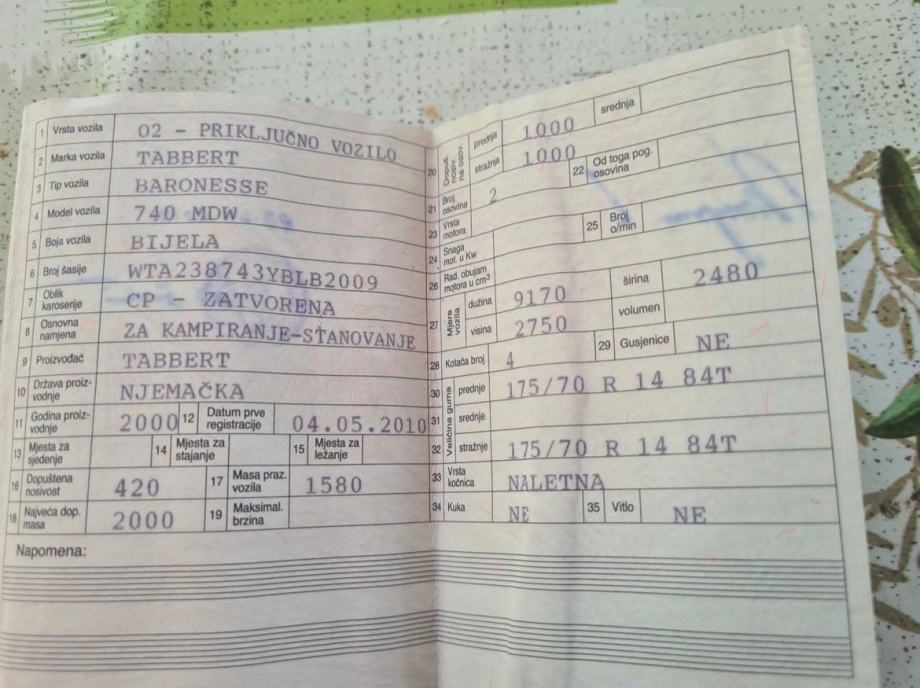 1 Vrsta vozila 02 - PRIKLJUČNO VOZILO
2 Marka vozila TABBERT
3 Tip vozila BARONESSE
4 Model vozila 740 MDW
5 Boja vozila BIJELA
6 Broj šasije WTA238743YBLB2009
7 Oblik karoserije CP - ZATVORENA
8 Osnovna namjena ZA KAMPIRANJE-STANOVANJE
9 Proizvođač TABBERT
10 Država proiz-vodnje NJEMAČKA
11 Godina proiz-vodnje 2000 12 Datum prve registracije 04.05.2010
13 Mjesta za sjedenje 14 Mjesta za stajanje 15 Mjesta za ležanje
16 Dopuštena nosivost 420 17 Masa praz. vozila 1580
18 Najveća dop. masa 2000 19 Maksimal. brzina
Napomena:
20 Dopuš. nosiv. na osov. prednja 1000 srednja
stražnja 1000
21 Broj osovina 2 22 Od toga pog. osovina
23 Vrsta motora
24 Snaga mot. u Kw 25 Broj o/min
26 Rad. obujam motora u cm³
27 Mjere vozila dužina 9170 širina 2480
visina 2750 volumen
28 Kotača broj 4 29 Gusjenice NE
30 Veličina guma prednje 175/70 R 14 84T
31 srednje
32 stražnje 175/70 R 14 84T
33 Vrsta kočnica NALETNA
34 Kuka NE 35 Vitlo NE